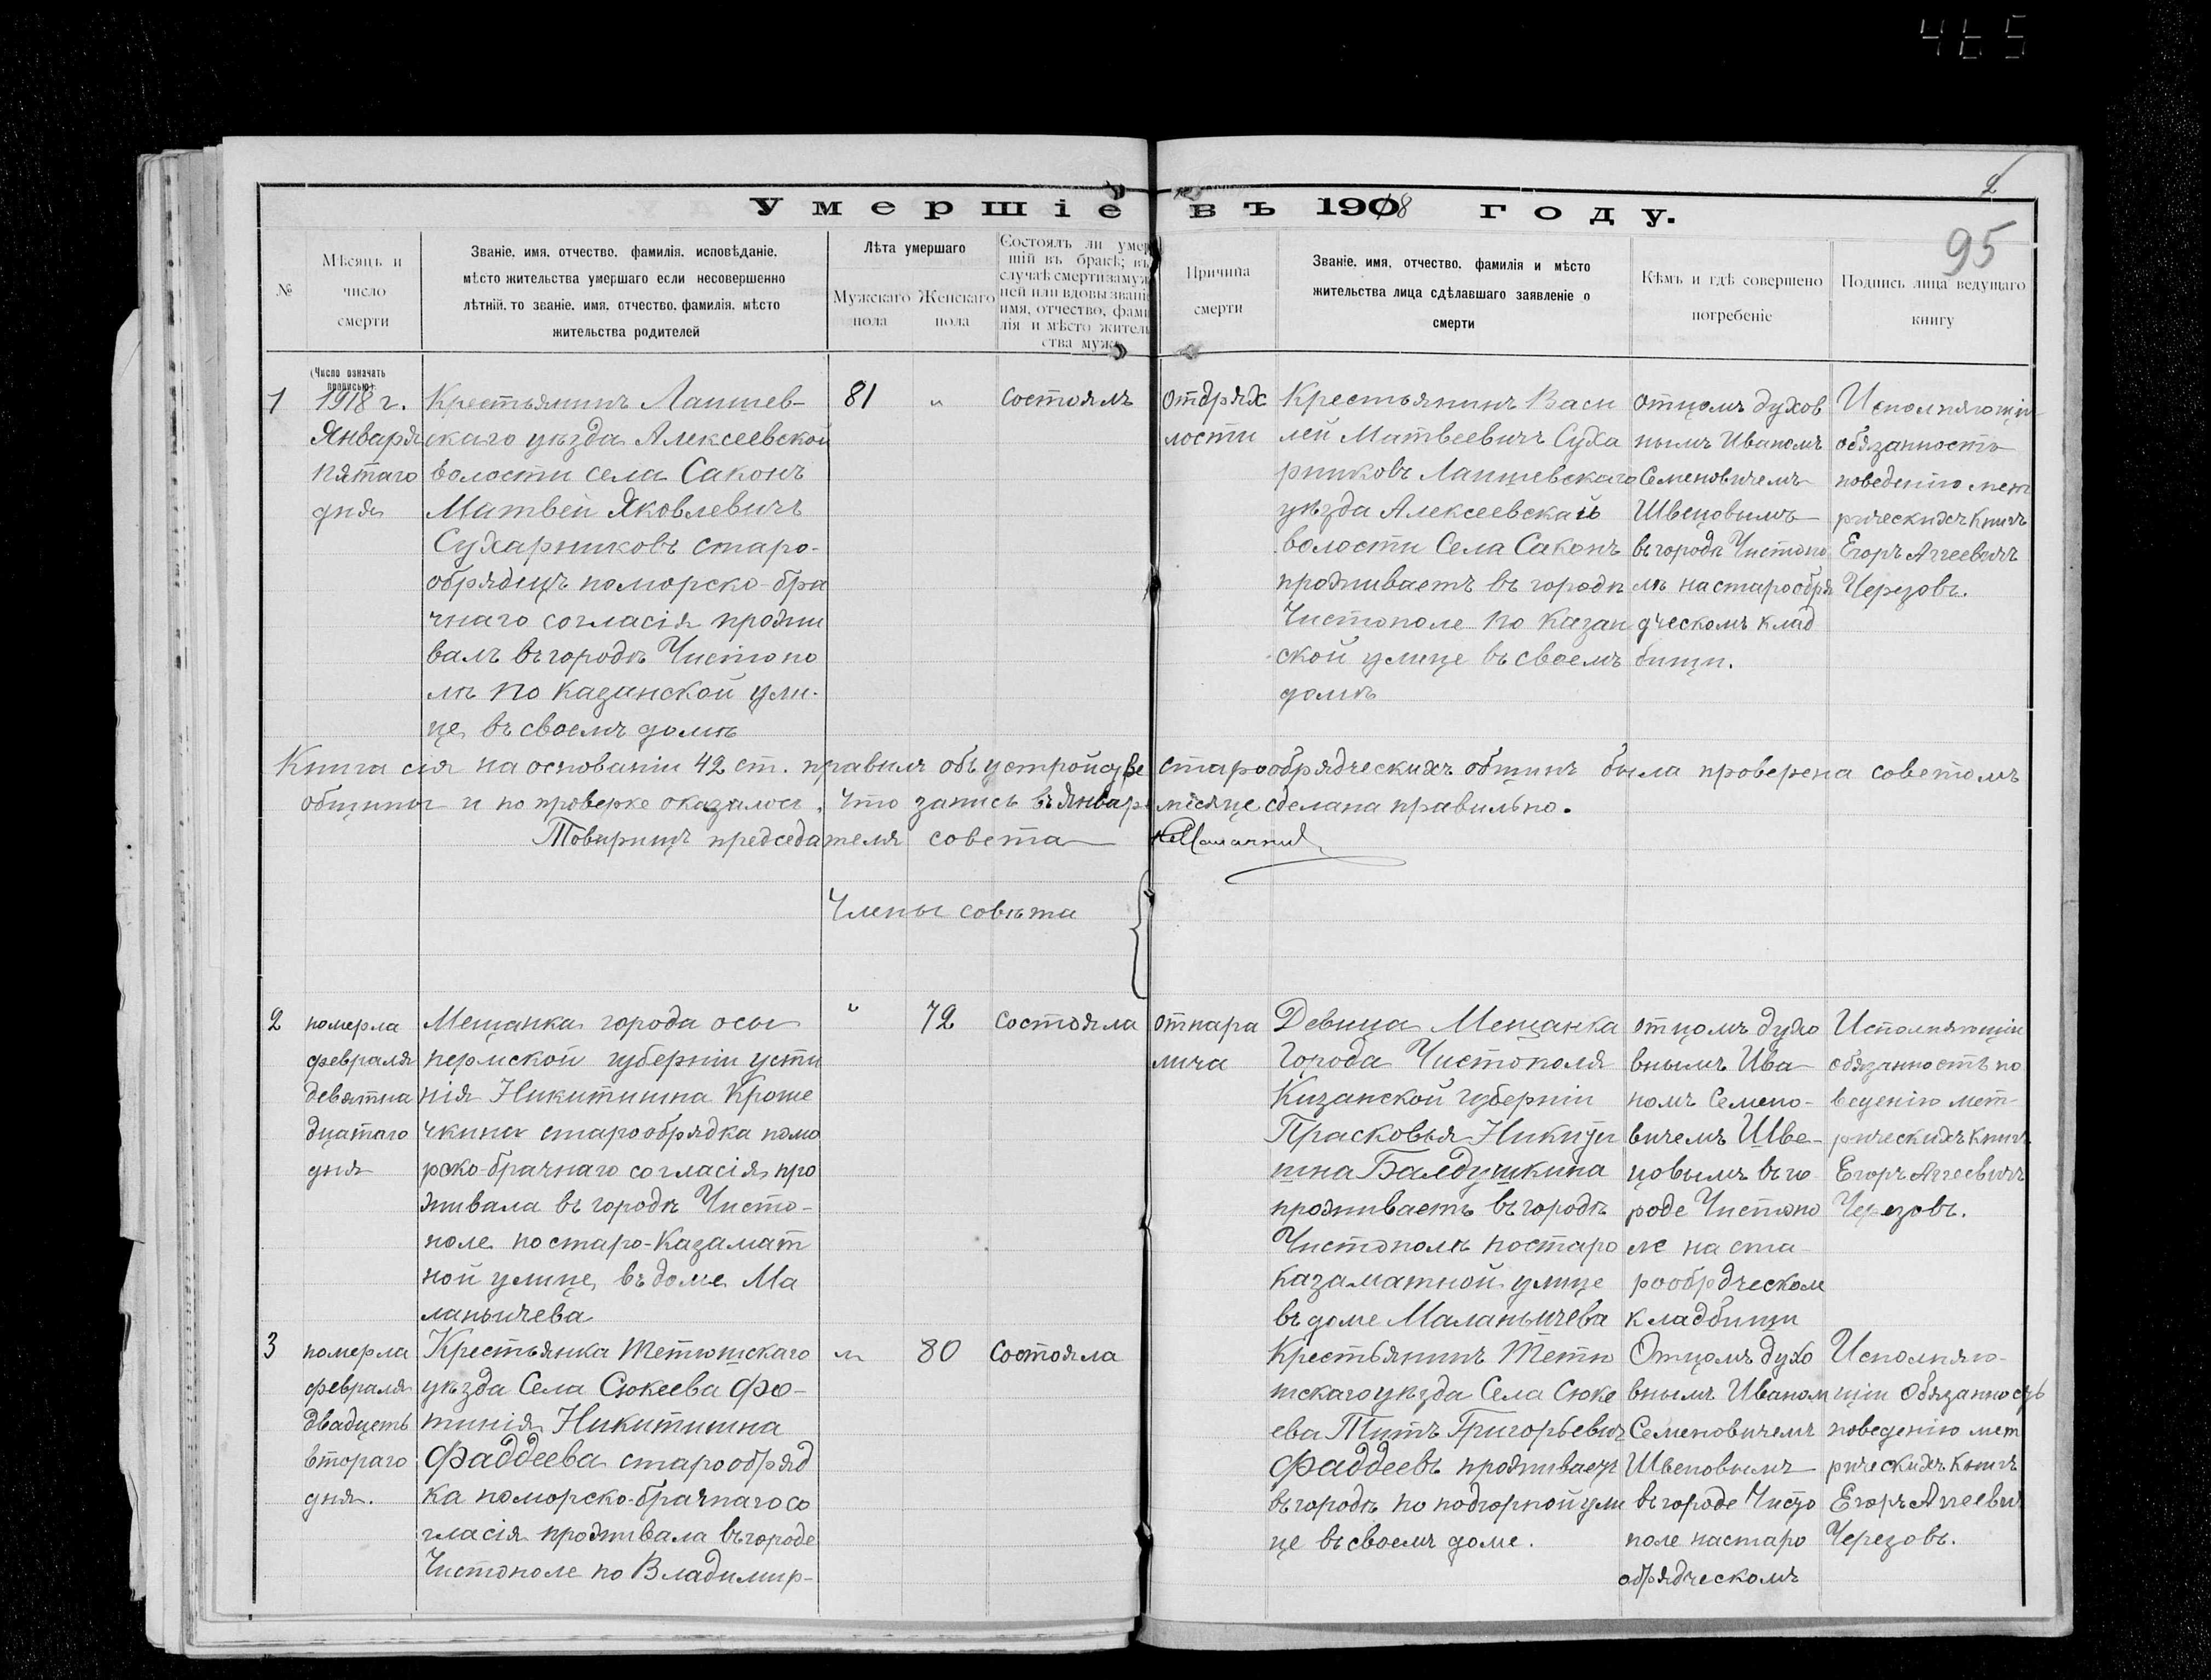 465
2
95
Умершіе въ 19018 году.
№
Мѣсяцъ и
число
смерти
Званіе, имя, отчество, фамилія, исповѣданіе,
мѣсто жительства умершаго если несовершенно
лѣтній, то званіе, имя, отчество, фамилія, мѣсто
жительства родителей
Лѣта умершаго
Мужскаго пола
Женскаго пола
Состоялъ ли умер
шій въ бракѣ; въ
случаѣ смерти замуж
ней или вдовы званіе
имя, отчество, фами
лія и мѣсто житель
ства мужа
Причина
смерти
Званіе, имя, отчество, фамилія и мѣсто
жительства лица сдѣлавшаго заявленіе о
смерти
Кѣмъ и гдѣ совершено
погребеніе
Подпись лица ведущаго
книгу
(Число означать
прописью).
1
1918 г.
Января
пятаго
дня
Крестьянинъ Лаишев-
скаго уѣзда Алексеевской
волости села Саконъ
Матвей Яковлевичъ
Сухарниковъ старо-
обрядецъ поморско-бра
чнаго согласія прожи
валъ въ городѣ Чистопо
лѣ по Казанской ули-
це, въ своемъ домѣ
81
"
состоялъ
отдрях
лости
Крестьянинъ Васи
лей Матвеевичъ Суха
рниковъ Лаишевскаго
уѣзда Алексеевскай
волости Села Саконъ
проживаетъ въ городѣ
Чистополе по Казан
ской улице въ своемъ
домѣ
отцомъ духов
нымъ Иваномъ
Семеновичемъ
Швецовымъ
въ городѣ Чистопо
лѣ на старообря
дческомъ клад
бищи.
Исполняющій
обязанность
поведению мет
рическихъ книгъ
Егоръ Аггеевичъ
Черезовъ.
Книга сія на основаніи 42 ст. правилъ объ устройстве старообрядческихъ общинъ была проверена советомъ
общины и по проверке оказалось, что запись въ Январе месяце сделана правильно.
Товарищъ председателя совета
Члены совѣта
2
померла
февраля
девятна
дцатаго
дня
Мещанка города осы
пермской губерніи усти
нія Никитишна Кроше
чкина старообрядка помо
рско-брачнаго согласія про
живала въ городѣ Чисто-
поле по старо-Казамат
ной улице, въ доме Ма
ланьичева
"
72
состояла
отпара
лича
Девица Мещанка
Города Чистополя
Казанской губерніи
Прасковья Никити
шна Балдушкина
проживаетъ въ городѣ
Чистополѣ постаро
казаматной улице
въ доме Маланьичева
отцомъ духо
внымъ Ива
номъ Семено-
вичемъ Шве-
цовымъ въ го
роде Чистопо
ле на ста
рообрдческом
кладбищи
Исполняющіи
обязанность по
веденію мет-
рическихъ книгъ
Егоръ Аггеевичъ
Черезовъ.
3
померла
февраля
двадцеть
втораго
дня.
Крестьянка Тетюшскаго
уѣзда Села Сюкеева Фо-
тинія Никитишна
Фаддеева старообряд
ка поморско-брачнаго со
гласія проживала въ городе
Чистополе по Владимир-
"
80
Состояла
Крестьянинъ Тетю
шскаго уѣзда Села Сюке
ева Титъ Григорьевич
Фаддеевъ проживаетъ
въ городѣ по подгорной ули
це въ своемъ доме.
Отцомъ духо
внымъ Иваном
Семеновичемъ
Швецовымъ
въ городе Чисто
поле настаро
обрядческомъ
Исполняю-
щіи Обязанность
поведению мет
рическихъ Книгъ
Егоръ Аггеевич
Черезовъ.